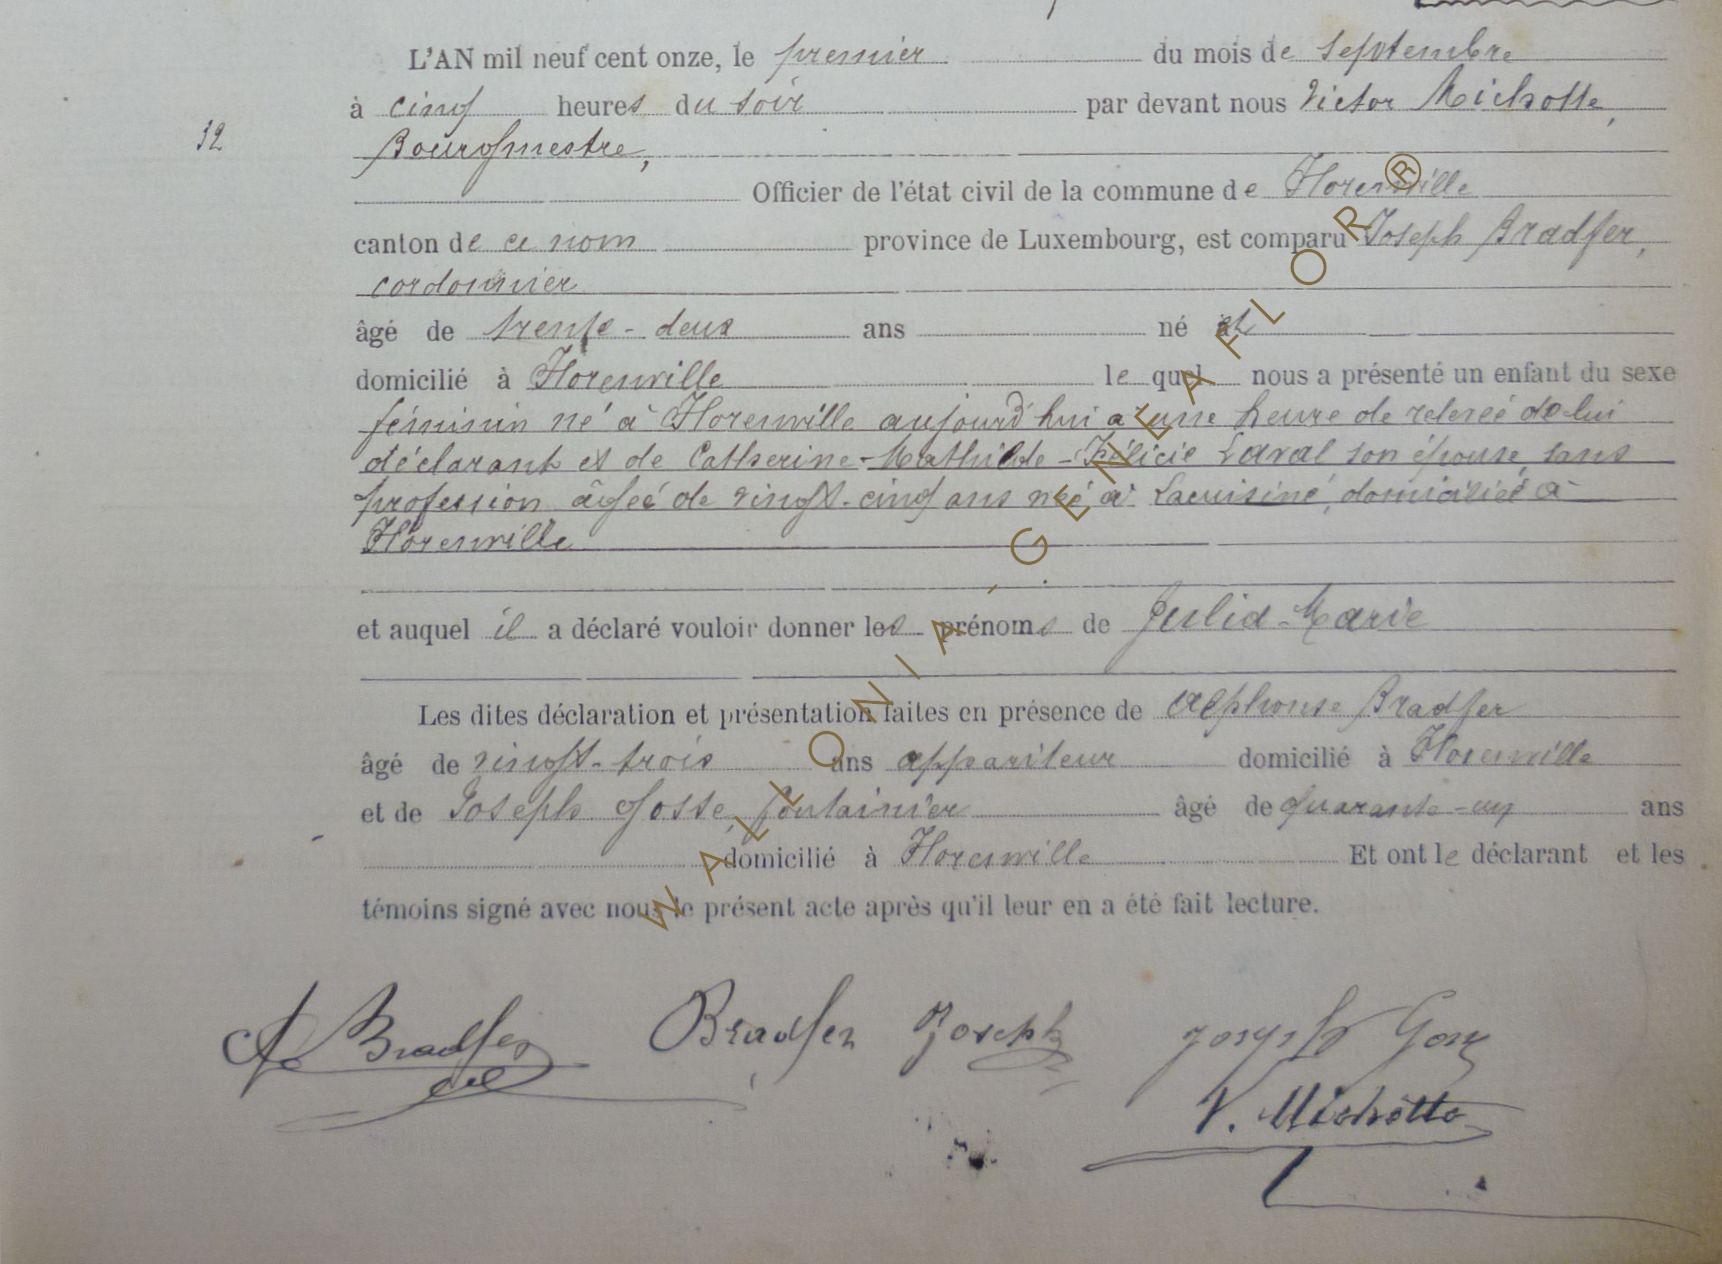 L'AN mil neuf cent onze, le premier du mois de septembre
à cinq heures du soir par devant nous Victor Michotte,
32
Bourgmestre,
Officier de l'état civil de la commune de Florenville
canton de ce nom province de Luxembourg, est comparu Joseph Bradfer,
cordonnier
âgé de trente-deux ans né et
domicilié à Florenville le quel nous a présenté un enfant du sexe
féminin né à Florenville aujourd'hui à une heure de relevée de lui
déclarant et de Catherine-Mathilde-Félicie Laval son épouse, sans
profession âgée de vingt-cinq ans née à Lacuisine, domiciliée à
Florenville
et auquel il a déclaré vouloir donner les prénoms de Julia-Marie
Les dites déclaration et présentation faites en présence de Alphonse Bradfer
âgé de vingt-trois ans appariteur domicilié à Florenville
et de Joseph Gosse, fontainier âgé de quarante-un ans
domicilié à Florenville Et ont le déclarant et les
témoins signé avec nous le présent acte après qu'il leur en a été fait lecture.
A. Bradfer Bradfer Joseph Joseph
V. Michotte
WALLONIA - GENEAFLOR ®